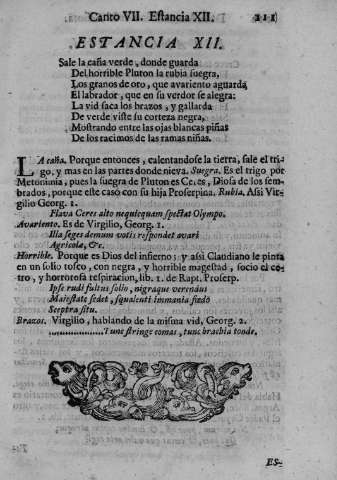 Canto VII. Estancia XII. 211
ESTANCIA XII.
Sale la caña verde, donde guarda
Del horrible Pluton la rubia suegra,
Los granos de oro, que avariento aguarda
El labrador, que en su verdor se alegra:
La vid saca los brazos, y gallarda
De verde viste su corteza negra,
Mostrando entre las ojas blancas piñas
De los racimos de las ramas niñas.
LA caña. Porque entonces, calentandose la tierra, sale el tri-
go, y mas en las partes donde nieva. Suegra. Es el trigo por
Metonimia, pues la suegra de Pluton es Ceres, Diosa de los sem-
brados, porque este casó con su hija Proserpina. Rubia. Assi Vir-
gilio Georg. 1.
Flava Ceres alto nequicquam spectat Olympo.
Avariento. Es de Virgilio, Georg. 1.
Illa seges demum votis respondet avari
Agricolæ, &c.
Horrible. Porque es Dios del infierno; y assi Claudiano le pinta
en un solio tosco, con negra, y horrible magestad, sucio el ce-
tro, y horrorosa respiracion, lib. 1. de Rapt. Proserp.
Ipse rudi fultus solio, nigraque verendus
Maiestate sedet, squalenti immania fœdo
Sceptra situ.
Brazos. Virgilio, hablando de la misma vid, Georg. 2.
.................Tunc stringe comas, tunc brachia tonde.
ES-